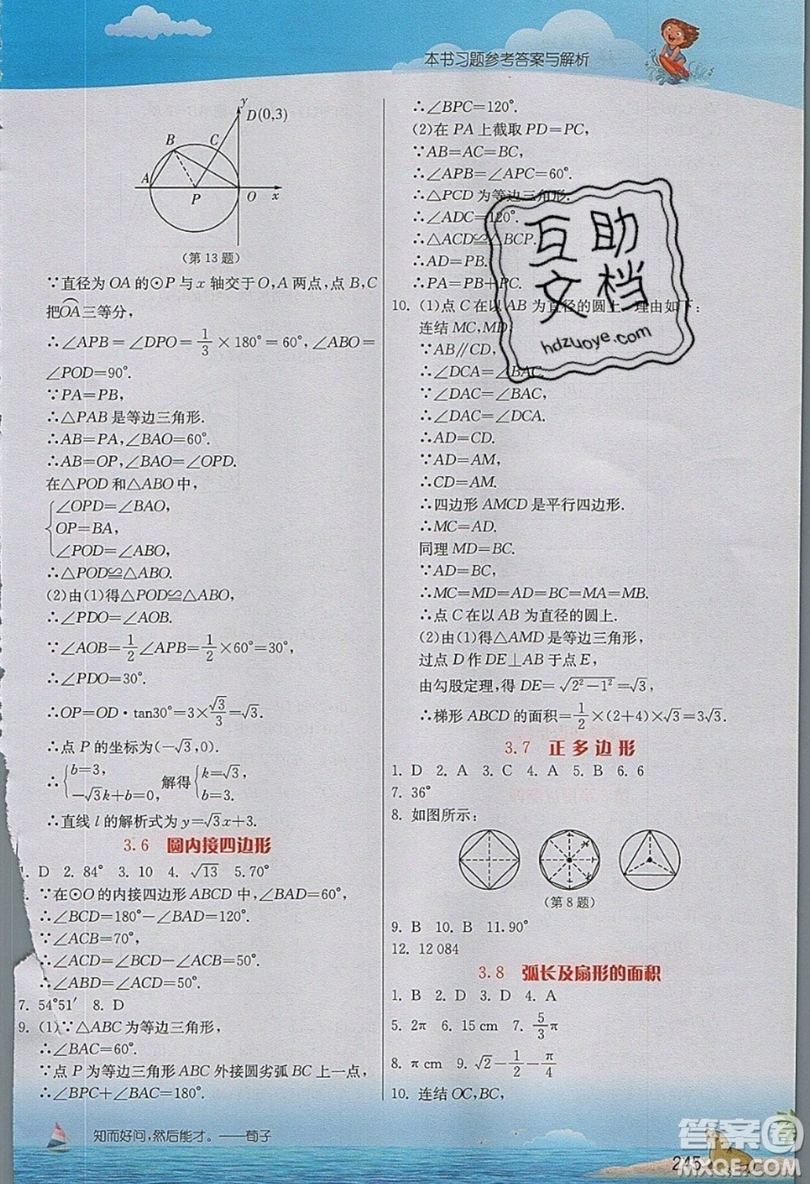 本书习题参考答案与解析
y
D(0,3)
B
C
A
P
O
x
(第13题)
∵直径为OA的⊙P与x轴交于O,A两点,点B,C
把OA三等分,
∴∠APB=∠DPO=1/3×180°=60°,∠ABO=
∠POD=90°.
∵PA=PB,
∴△PAB是等边三角形.
∴AB=PA,∠BAO=60°.
∴AB=OP,∠BAO=∠OPD.
在△POD和△ABO中,
∠OPD=∠BAO,
OP=BA,
∠POD=∠ABO,
∴△POD≌△ABO.
(2)由(1)得△POD≌△ABO,
∴∠PDO=∠AOB.
∵∠AOB=1/2∠APB=1/2×60°=30°,
∴∠PDO=30°.
∴OP=OD·tan30°=3×√3/3=√3.
∴点P的坐标为(-√3,0).
∴{b=3, -√3k+b=0, 解得{k=√3, b=3.
∴直线l的解析式为y=√3x+3.
3.6 圆内接四边形
1. D 2. 84° 3. 10 4. √13 5.70°
∵在⊙O的内接四边形ABCD中,∠BAD=60°,
∴∠BCD=180°-∠BAD=120°.
∵∠ACB=70°,
∴∠ACD=∠BCD-∠ACB=50°.
∴∠ABD=∠ACD=50°.
7. 54°51′ 8. D
9. (1)∵△ABC为等边三角形,
∴∠BAC=60°.
∵点P为等边三角形ABC外接圆劣弧BC上一点,
∴∠BPC+∠BAC=180°.
∴∠BPC=120°.
(2)在PA上截取PD=PC,
∵AB=AC=BC,
∴∠APB=∠APC=60°.
∴△PCD为等边三角形.
∴∠ADC=120°.
∴△ACD≌△BCP.
∴AD=PB.
∴PA=PB+PC.
10. (1)点C在以AB为直径的圆上.理由如下:
连结MC,MD,
∵AB∥CD,
∴∠DCA=∠BAC.
∵∠DAC=∠BAC,
∴∠DAC=∠DCA.
∴AD=CD.
∵AD=AM,
∴CD=AM.
∴四边形AMCD是平行四边形.
∴MC=AD.
同理MD=BC.
∵AD=BC,
∴MC=MD=AD=BC=MA=MB.
∴点C在以AB为直径的圆上.
(2)由(1)得△AMD是等边三角形,
过点D作DE⊥AB于点E,
由勾股定理,得DE=√(2²-1²)=√3.
∴梯形ABCD的面积=1/2×(2+4)×√3=3√3.
3.7 正多边形
1. D 2. A 3. C 4. A 5. B 6. 6
7. 36°
8. 如图所示:
(第8题)
9. B 10. B 11.90°
12. 12 084
3.8 弧长及扇形的面积
1. B 2. B 3. D 4. A
5. 2π 6. 15 cm 7. 5/3π
8. π cm 9. √2-1/2-π/4
10. 连结OC,BC,
知而好问,然后能才。——荀子
245
互助文档
hdzuoye.com
答案圈
MXQE.COM